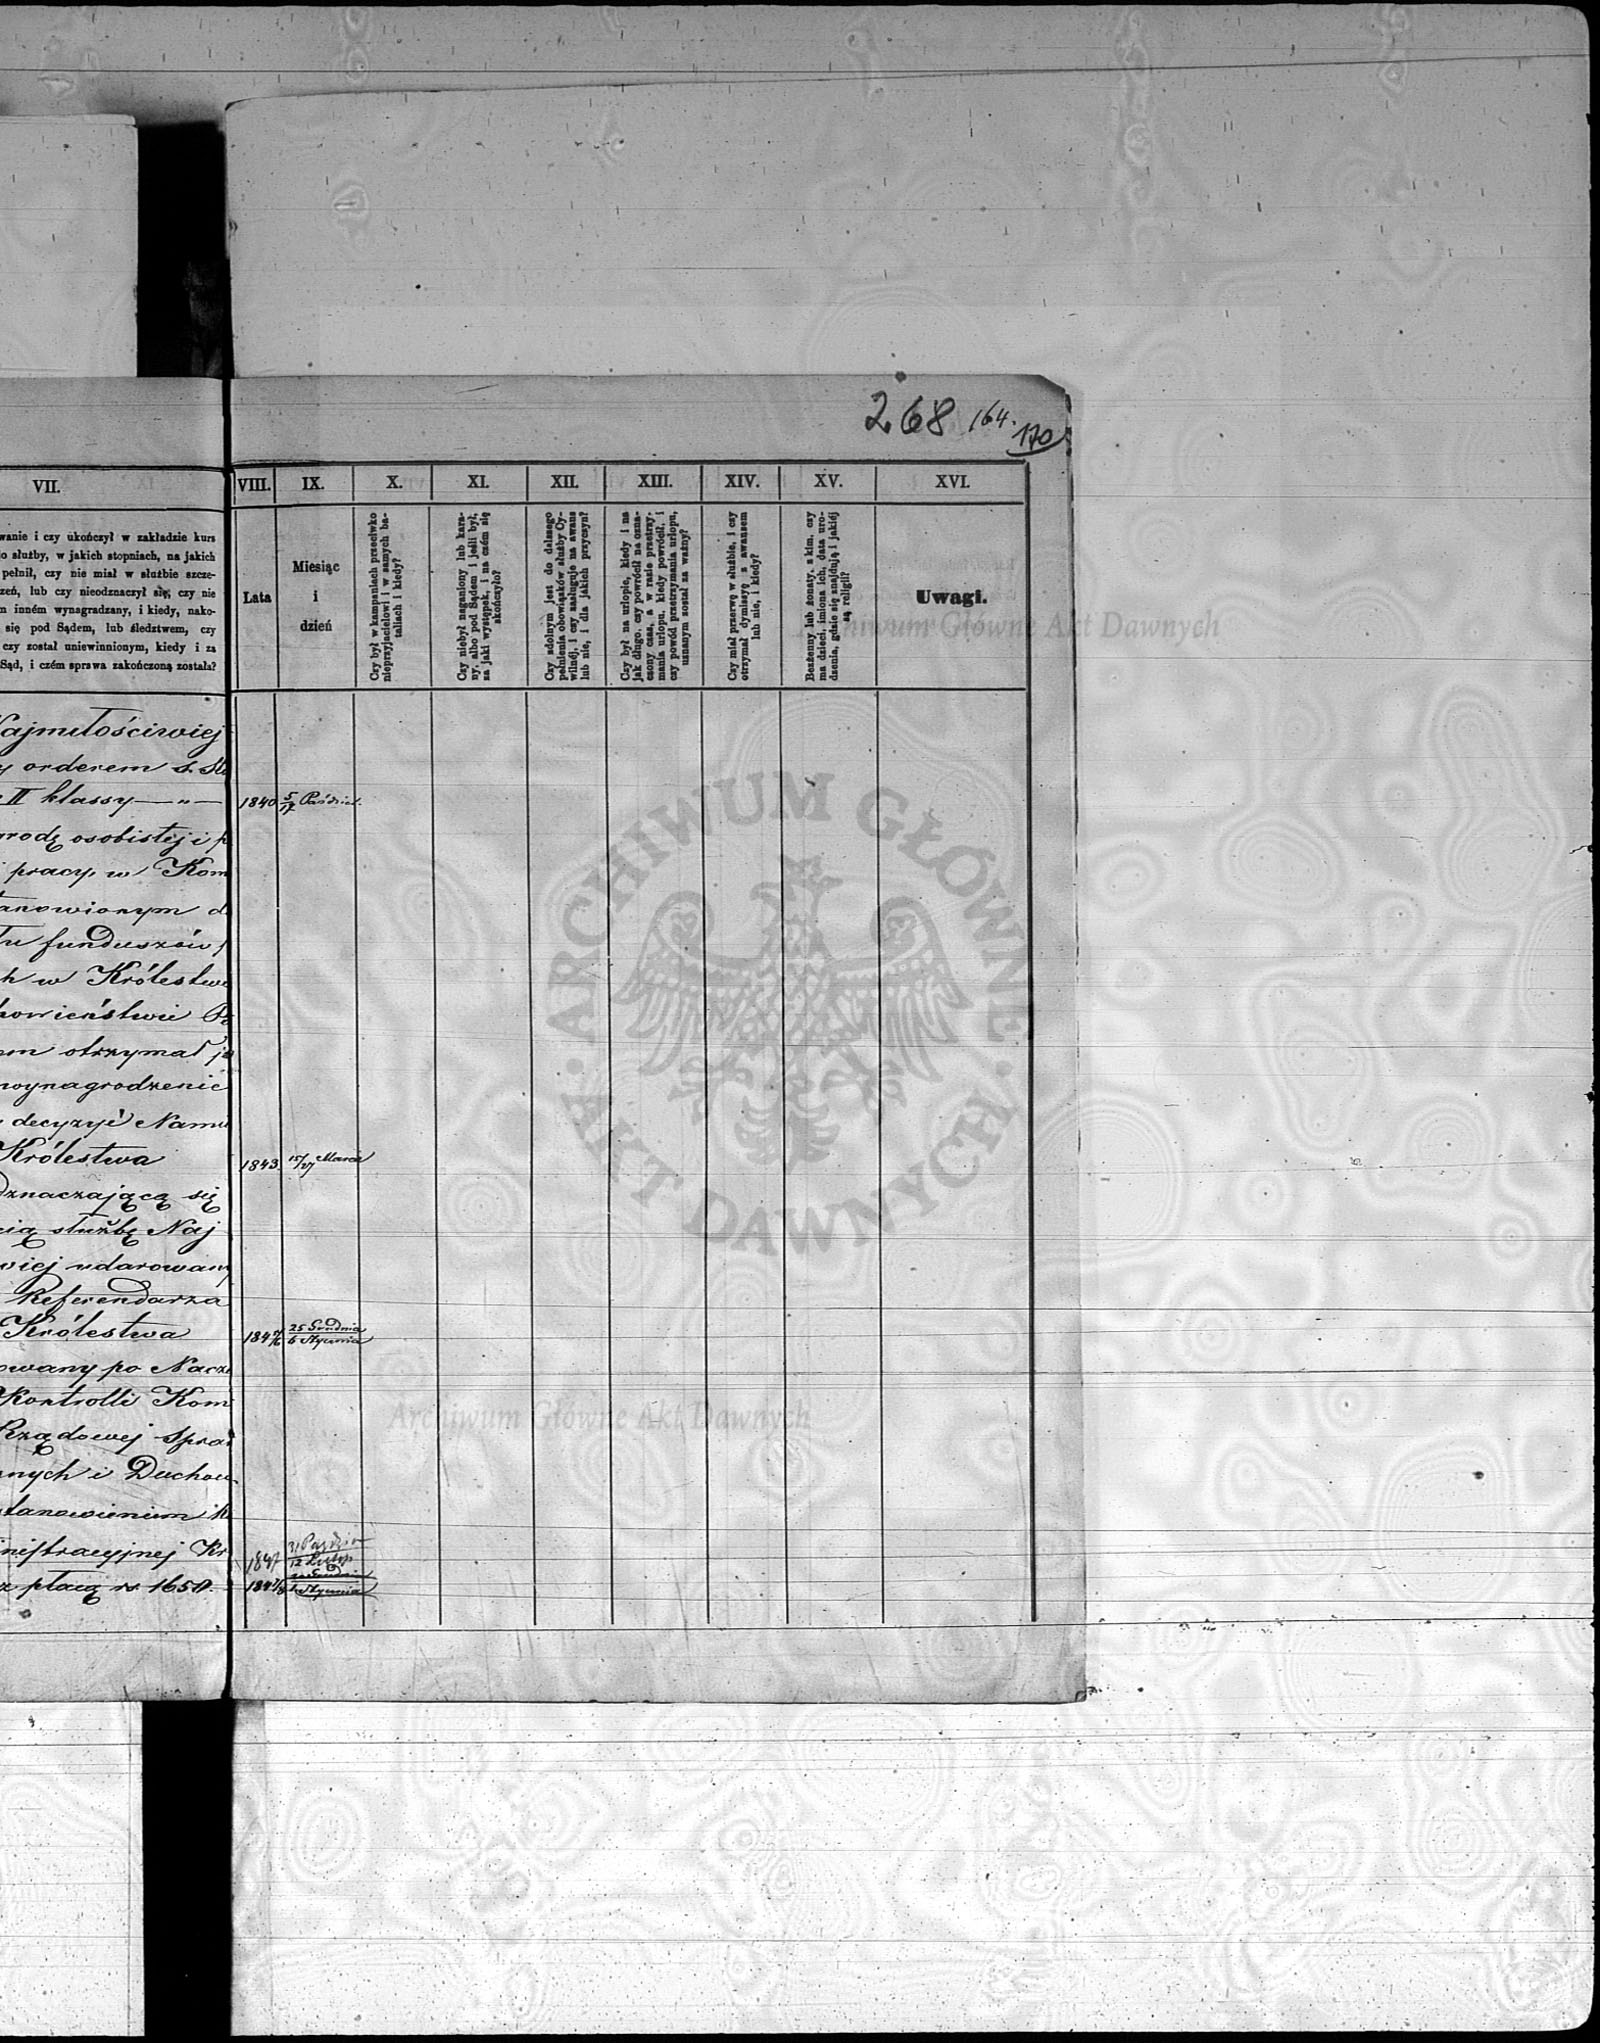 268 164. 170
VII. VIII. IX. X. XI. XII. XIII. XIV. XV. XVI.
wanie i czy ukończył w zakładzie kurs
o służby, w jakich stopniach, na jakich
pełnił, czy nie miał w służbie szcze-
zeń, lub czy nieodznaczył się, czy nie
m inném wynagradzany, i kiedy, nako-
się pod Sądem, lub śledztwem, czy
czy został uniewinnionym, kiedy i za
Sąd, i czém sprawa zakończoną została?
Lata
Miesiąc
i
dzień
Czy był w kampaniach przeciwko
nieprzyjacielowi i w samych ba-
taliach i kiedy?
Czy niebył naganiony lub kara-
ny, albo pod Sądem i jeśli był,
za jaki występek, i na czém się
skończyło?
Czy zdolnym jest do dalszego
pełnienia obowiązków służby Cy-
wilnéj, i czy zasługuje na awans
lub nie, i dla jakich przyczyn?
Czy był na urlopie, kiedy i na
jak długo, czy powrócił na ozna-
czony czas, a w razie przetrzy-
mania urlopu, kiedy powrócił, i
czy powód przetrzymania urlopu,
uznanym został za ważny?
Czy miał przerwę w służbie, i czy
otrzymał dymissyę z awansem
lub nie, i kiedy?
Bezżenny lub żonaty, z kim, czy
ma dzieci, imiona ich, data uro-
dzenia, gdzie się znajdują i jakiéj
są religii?
Uwagi.
Najmiłościwiej
orderem S. Sta
II klassy —„— 1840 5/17 Paździer.
grodę osobistej i p
pracy, w Kom
tanowionym d
łu funduszów
h w Królestwie
howieństwu
on otrzymał
wynagrodzenie
decyzyi Nami
Królestwa 1843 15/27 Marca
dznaczającą się
cią służbę Naj
wiej udarowany
Referendarza
Królestwa 184 5/6 25 Grudnia/6 Stycznia
owany po Nacze
Kontrolli Kom
Rządowej Spraw
nych i Duchow
stanowieniem
inistracyjnej Kr 1847
z płacą rs 1650. 184 7/8 Stycznia
ARCHIWUM GŁÓWNE AKT DAWNYCH
Archiwum Główne Akt Dawnych
Archiwum Główne Akt Dawnych